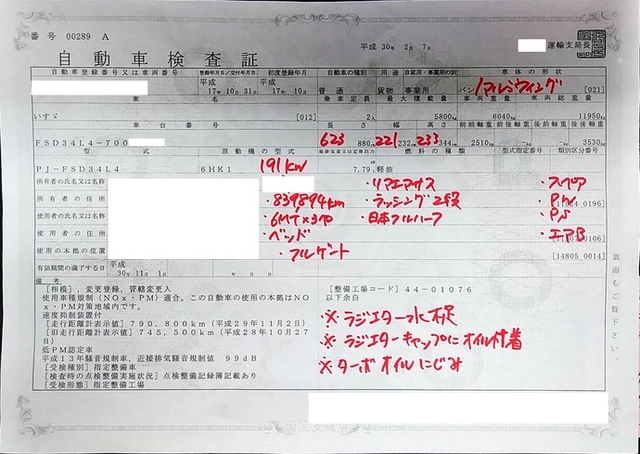 番号 00289 A
平成 30年 2月 7日
運輸支局長
自動車検査証
自動車登録番号又は車両番号 登録年月日/交付年月日 初度登録年月 自動車の種別 用途 自家用・事業用の別 車体の形状
平成 平成
17年 10月 31日 17年 10月 普通 貨物 事業用 バン アルミウイング [021]
車名 乗車定員 最大積載量 車両重量 車両総重量
いすゞ [012] 2人 5800kg 6040kg 11950kg
車台番号 長さ 幅 高さ 前前軸重 前後軸重 後前軸重 後後軸重
FSD34L4-700 623 880cm 221 232cm 233 344cm 2510kg 3530kg
型式 原動機の型式 燃料の種類 型式指定番号 類別区分番号
PJ-FSD34L4 6HK1 191kw 7.79 軽油
所有者の氏名又は名称 ・リアエアサス ・スペア
所有者の住所 ・839894km ・ラッシング2段 ・PW
使用者の氏名又は名称 ・6MT ・日本フルハーフ ・PS
使用者の住所 ・ベッド ・エアB
使用の本拠の位置 [14805 0014]
有効期間の満了する日 平成
30年 11月 1日
備考
[相模],変更登録,管轄変更入 [整備工場コード] 44-01076
使用車種規制(NOx・PM)適合。この自動車の使用の本拠はNO 以下余白
x・PM対策地域内です。
速度抑制装置付 ※ラジエター水不足
[走行距離計表示値] 790,800km(平成29年11月2日)
[旧走行距離計表示値] 745,500km(平成28年10月27日) ※ラジエターキャップにオイル付着
低PM認定車
平成13年騒音規制車,近接排気騒音規制値 99dB ※ターボオイルにじみ
[受検種別] 指定整備車
[検査時の点検整備実施状況] 点検整備記録簿記載あり
[受検形態] 指定整備工場
裏面もご覧下さい。